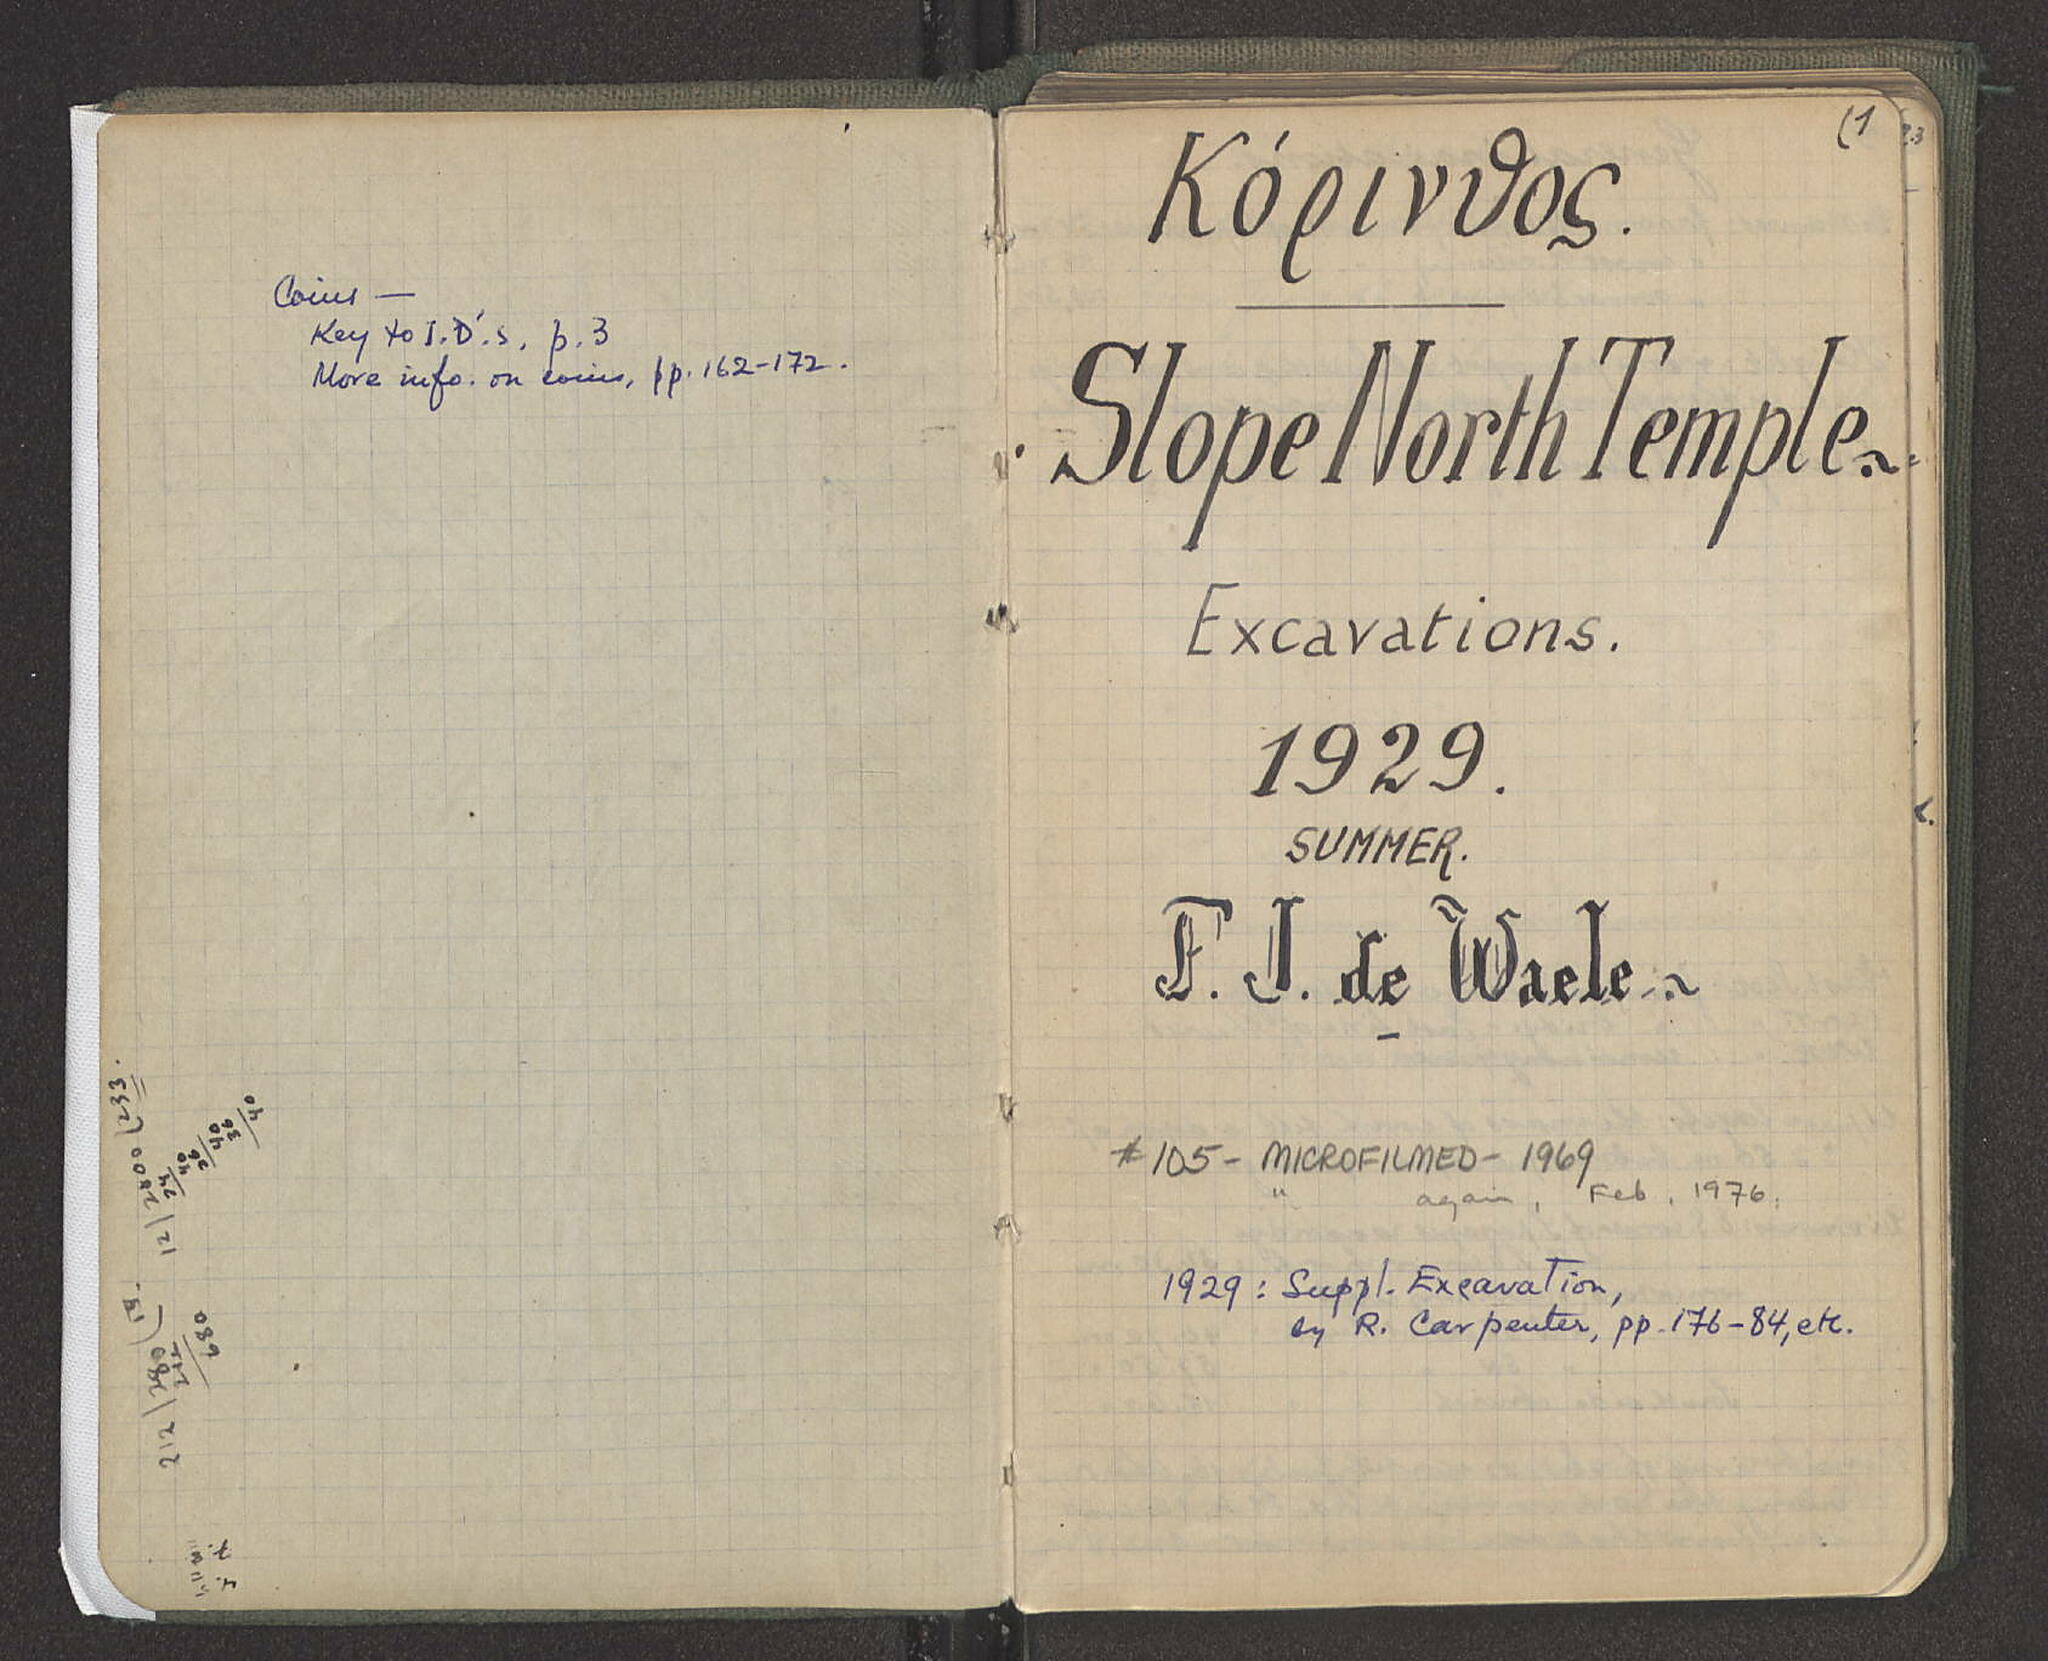 Coins —
Key to I.D.'s, p. 3
More info. on coins, pp. 162-172.
12 / 2800 ( 233.
24
40
36
40
36
40
212 / 280 (
212
680
(1
Κόρινθος.
Slope North Temple
Excavations.
1929.
SUMMER.
F. J. de Waele
# 105 - MICROFILMED - 1969
" again, Feb. 1976.
1929: Suppl. Excavation,
by R. Carpenter, pp. 176-84, etc.